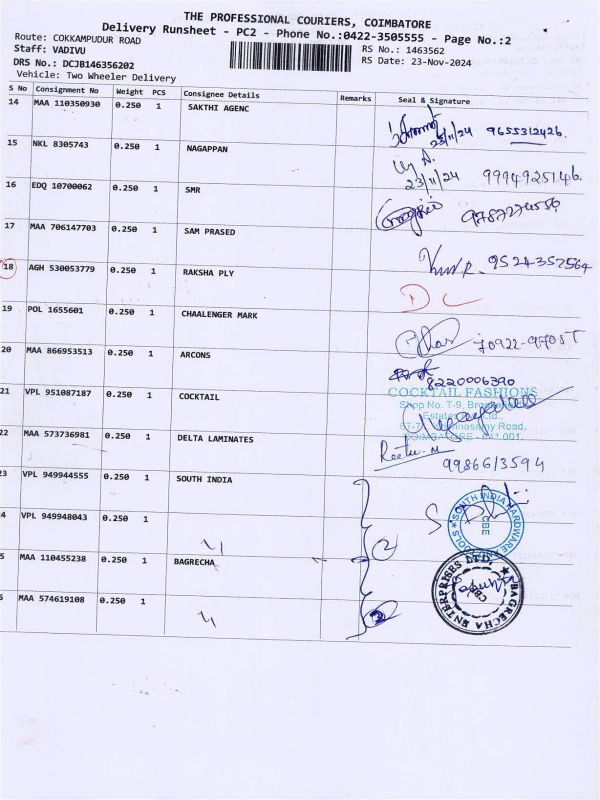 THE PROFESSIONAL COURIERS, COIMBATORE
Delivery Runsheet - PC2 - Phone No.:0422-3505555 - Page No.:2
Route: COKKAMPUDUR ROAD RS No.: 1463562
Staff: VADIVU RS Date: 23-Nov-2024
DRS No.: DCJB146356202
Vehicle: Two Wheeler Delivery
S No Consignment No Weight PCS Consignee Details Remarks Seal & Signature
14 MAA 110350930 0.250 1 SAKTHI AGENC
23/11/24 9655312426.
15 NKL 8305743 0.250 1 NAGAPPAN
23/11/24 9994925146.
16 EDQ 10700062 0.250 1 SMR
17 MAA 706147703 0.250 1 SAM PRASED
9524357564
18 AGH 530053779 0.250 1 RAKSHA PLY
DC
19 POL 1655601 0.250 1 CHAALENGER MARK
20 MAA 866953513 0.250 1 ARCONS
8220006390
21 VPL 951087187 0.250 1 COCKTAIL
COCKTAIL FASHIONS
Shop No. T-9,
COIMBATORE - 641 001.
22 MAA 573736981 0.250 1 DELTA LAMINATES
Reetu. M
9986613594
23 VPL 949944555 0.250 1 SOUTH INDIA
SOUTH INDIA HARDWARE TOOLS
CBE
24 VPL 949948043 0.250 1
2
25 MAA 110455238 0.250 1 BAGRECHA
BAGRECHA ENTERPRISES LTD.
MAA 574619108 0.250 1
2